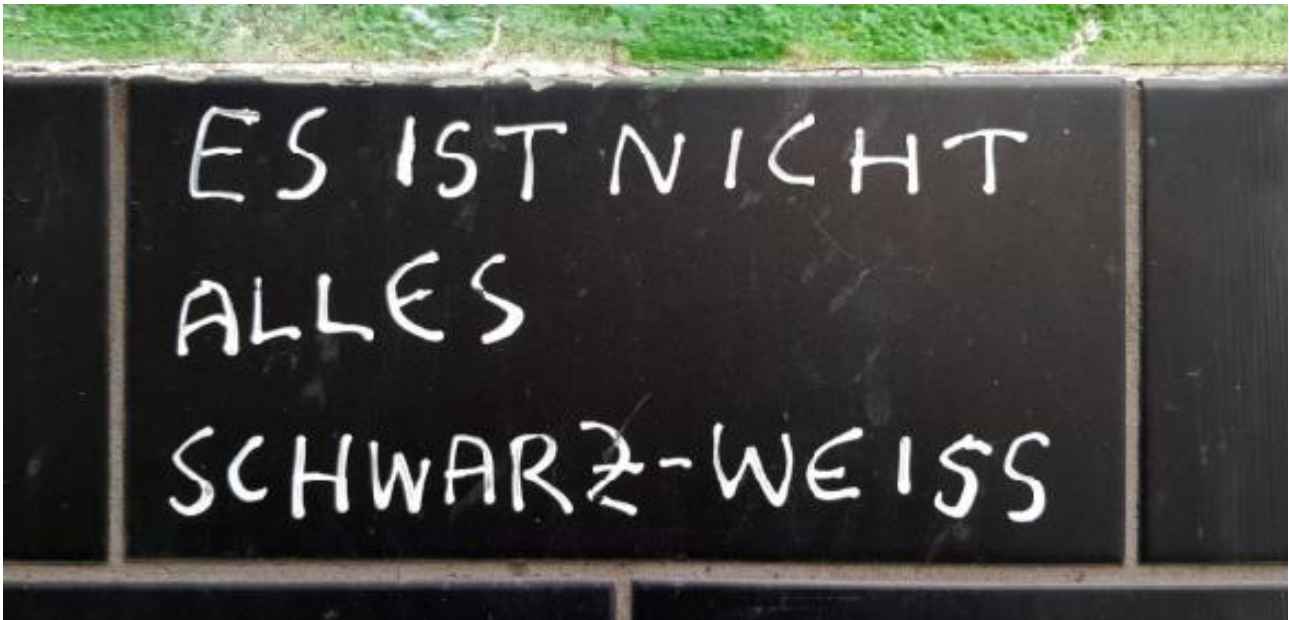 ES IST NICHT
ALLES
SCHWARZ-WEISS